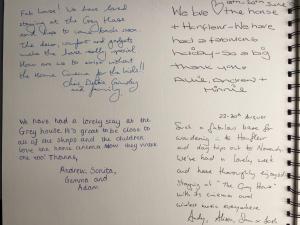 Fab house! We have loved
staying at the Grey House
and hope to come back soon.
The decor, comfort and gadgets
make this house really special.
How are we to enjoy without
the Home Cinema for the kids!!
and family
We have had a lovely stay at the
Grey house. It's great to be close to
all of the shops and the children
love the home cinema. Now they want
one too! Thanks,
Andrew, Sorita,
Gemma and
Adam
June
We love the house
+ Honfleur - We have
had a fantastic
holiday - So a big
thank you
Minnie
22-29th August
Such a fabulous base for
wandering in to Honfleur
and day trips out to Normandy.
We've had a lovely week
and have thoroughly enjoyed
staying at "The Grey House"
with its cinema and
everywhere.
Andy, Alison, + Jack